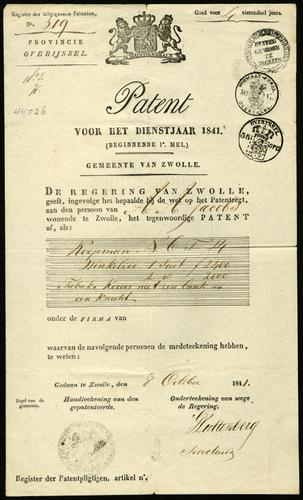 Register der uitgegevene Patenten,
N°. 319
PROVINCIE
OVERIJSSEL.
Goed voor vierendeel jaars.
44026
Patent
VOOR HET DIENSTJAAR 1841.
(BEGINNENDE 1°. MEI.)
GEMEENTE VAN ZWOLLE.
DE REGERING VAN ZWOLLE,
geeft, ingevolge het bepaalde bij de wet op het Patentregt,
aan den persoon van Jacobs
wonende te Zwolle, het tegenwoordige PATENT
af, als:
Koopman
Winkelier
Tabaks Kerver met een bank en
een knecht
onder de FIRMA van
waarvan de navolgende personen de medeteekening hebben,
te weten:
Gedaan te Zwolle, den 8 October 1841.
Zegel van de gemeente.
Handteekening van den gepatenteerde.
Onderteekening van wege de Regering.
Secretaris
Register der Patentpligtigen, artikel n°.